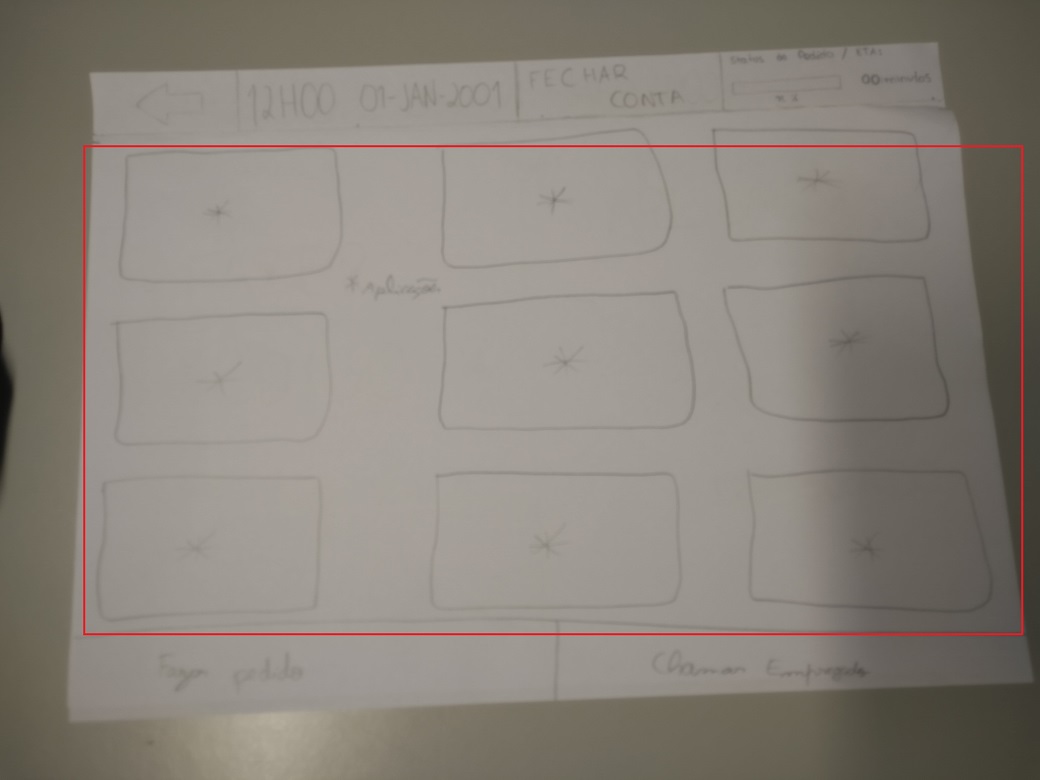 12H00 01-JAN-2001
FECHAR
CONTA
Status do Pedido / ETA:
00 minutos
* Aplicação
*
*
*
*
*
*
*
*
*
Fazer pedido
Chamar Empregado